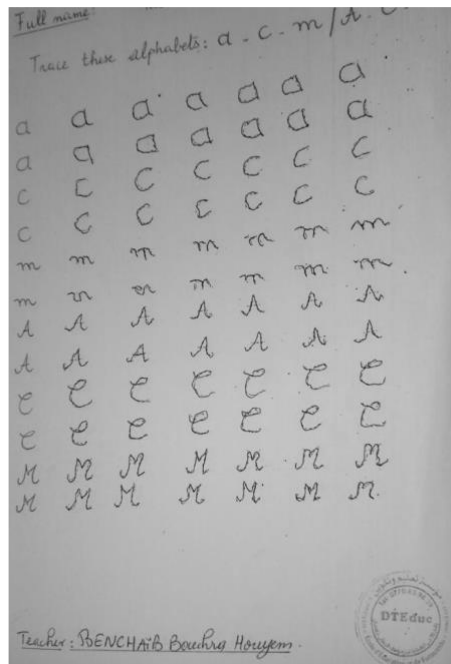 Full name:
Trace these alphabets: a - c - m / A - C
a a a a a a a
a a a a a a a
c c c c c c c
c c c c c c c
m m m m m m m
m m m m m m m
A A A A A A A
A A A A A A A
C C C C C C C
C C C C C C C
M M M M M M M
M M M M M M M
DTEduc
Teacher: BENCHAIB Bouchra Houyem.